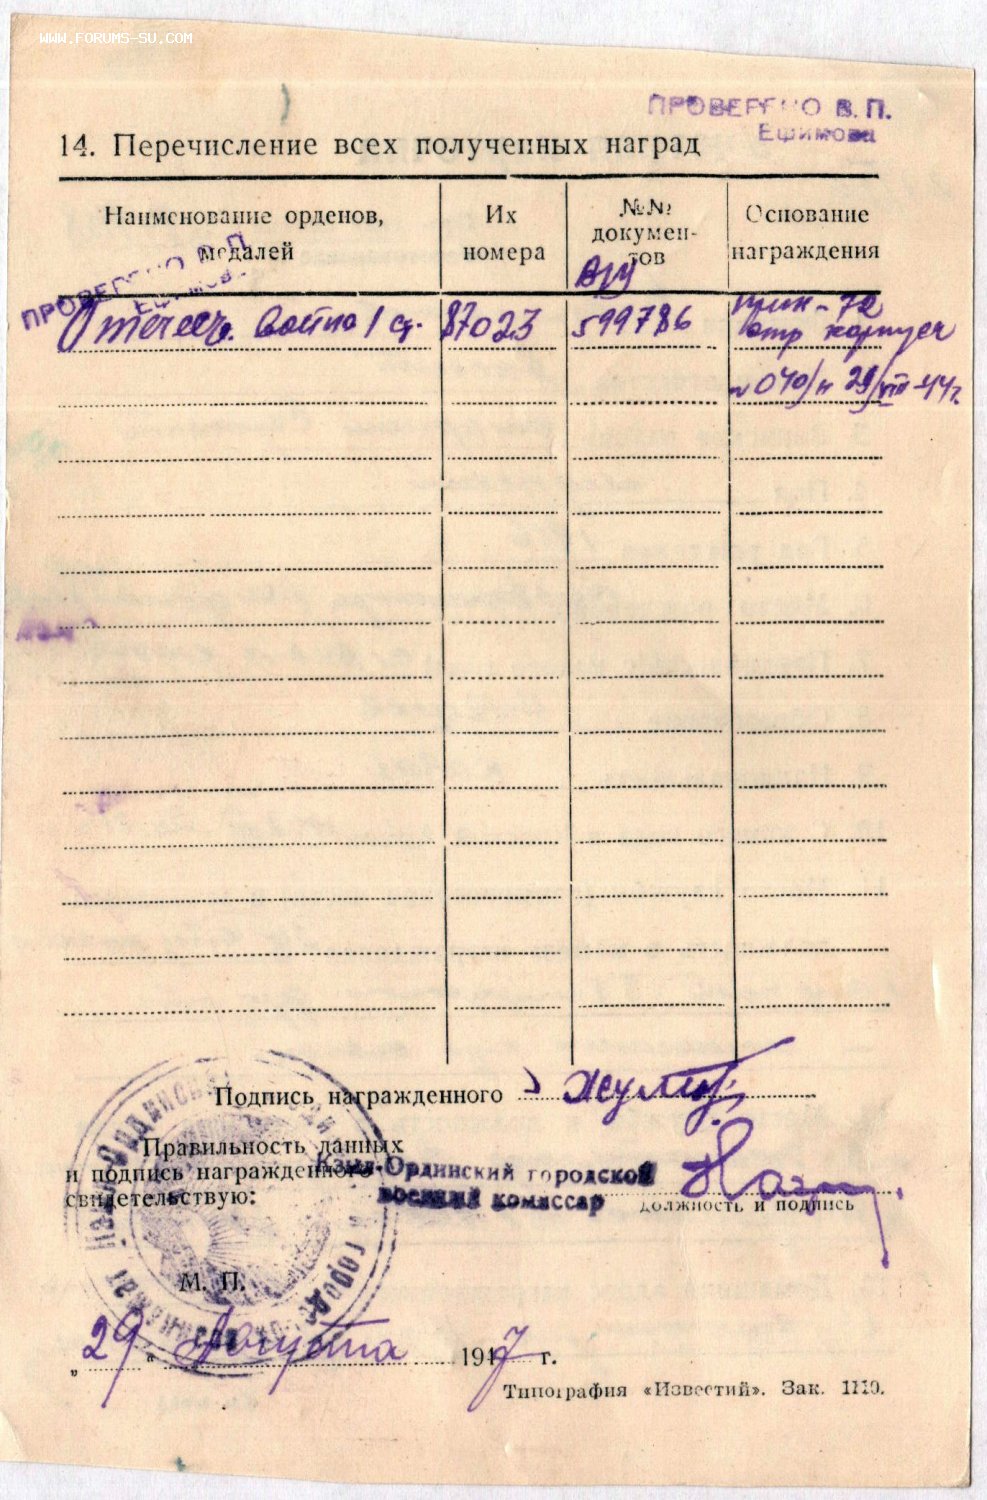 WWW.FORUMS-SU.COM
ПРОВЕРЕНО В.П.
Ефимова
14. Перечисление всех полученных наград
Наименование орденов, медалей
Их номера
№№ документов
Основание награждения
ПРОВЕРЕНО В.П.
Ефимова
Отечеств. война 1 ст. 87023 599786 72
стр корпуса
№ 040/н 29/VIII-44г.
Подпись награжденного
Правильность данных
и подпись награжденного Кзыл-Ординский городской
свидетельствую: военный комиссар
должность и подпись
М. П.
„29“ Августа 1947 г.
Типография «Известий». Зак. 1110.